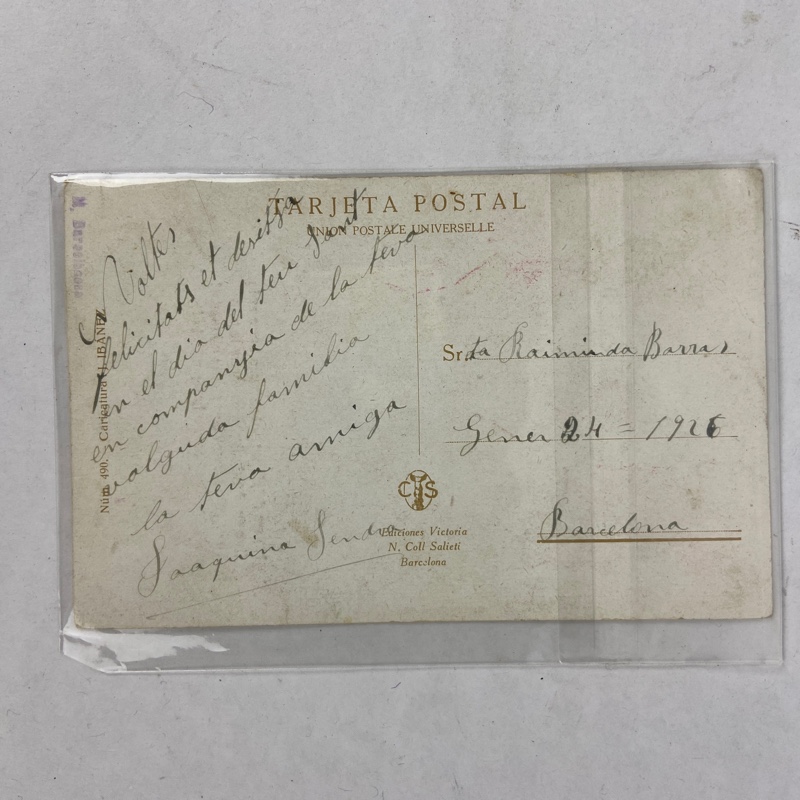 TARJETA POSTAL
UNION POSTALE UNIVERSELLE
Voltes
felicitats et desitja
en el dia del teu Sant
en companyia de la teva
volguda familia
la teva amiga
Joaquina Sendra
Srta Raimunda Barras
Gener 24 = 1926
Barcelona
CS
Ediciones Victoria
N. Coll Salieti
Barcelona
Núm. 490. Caricatura J. IBÁÑEZ
M. Barcelonesa